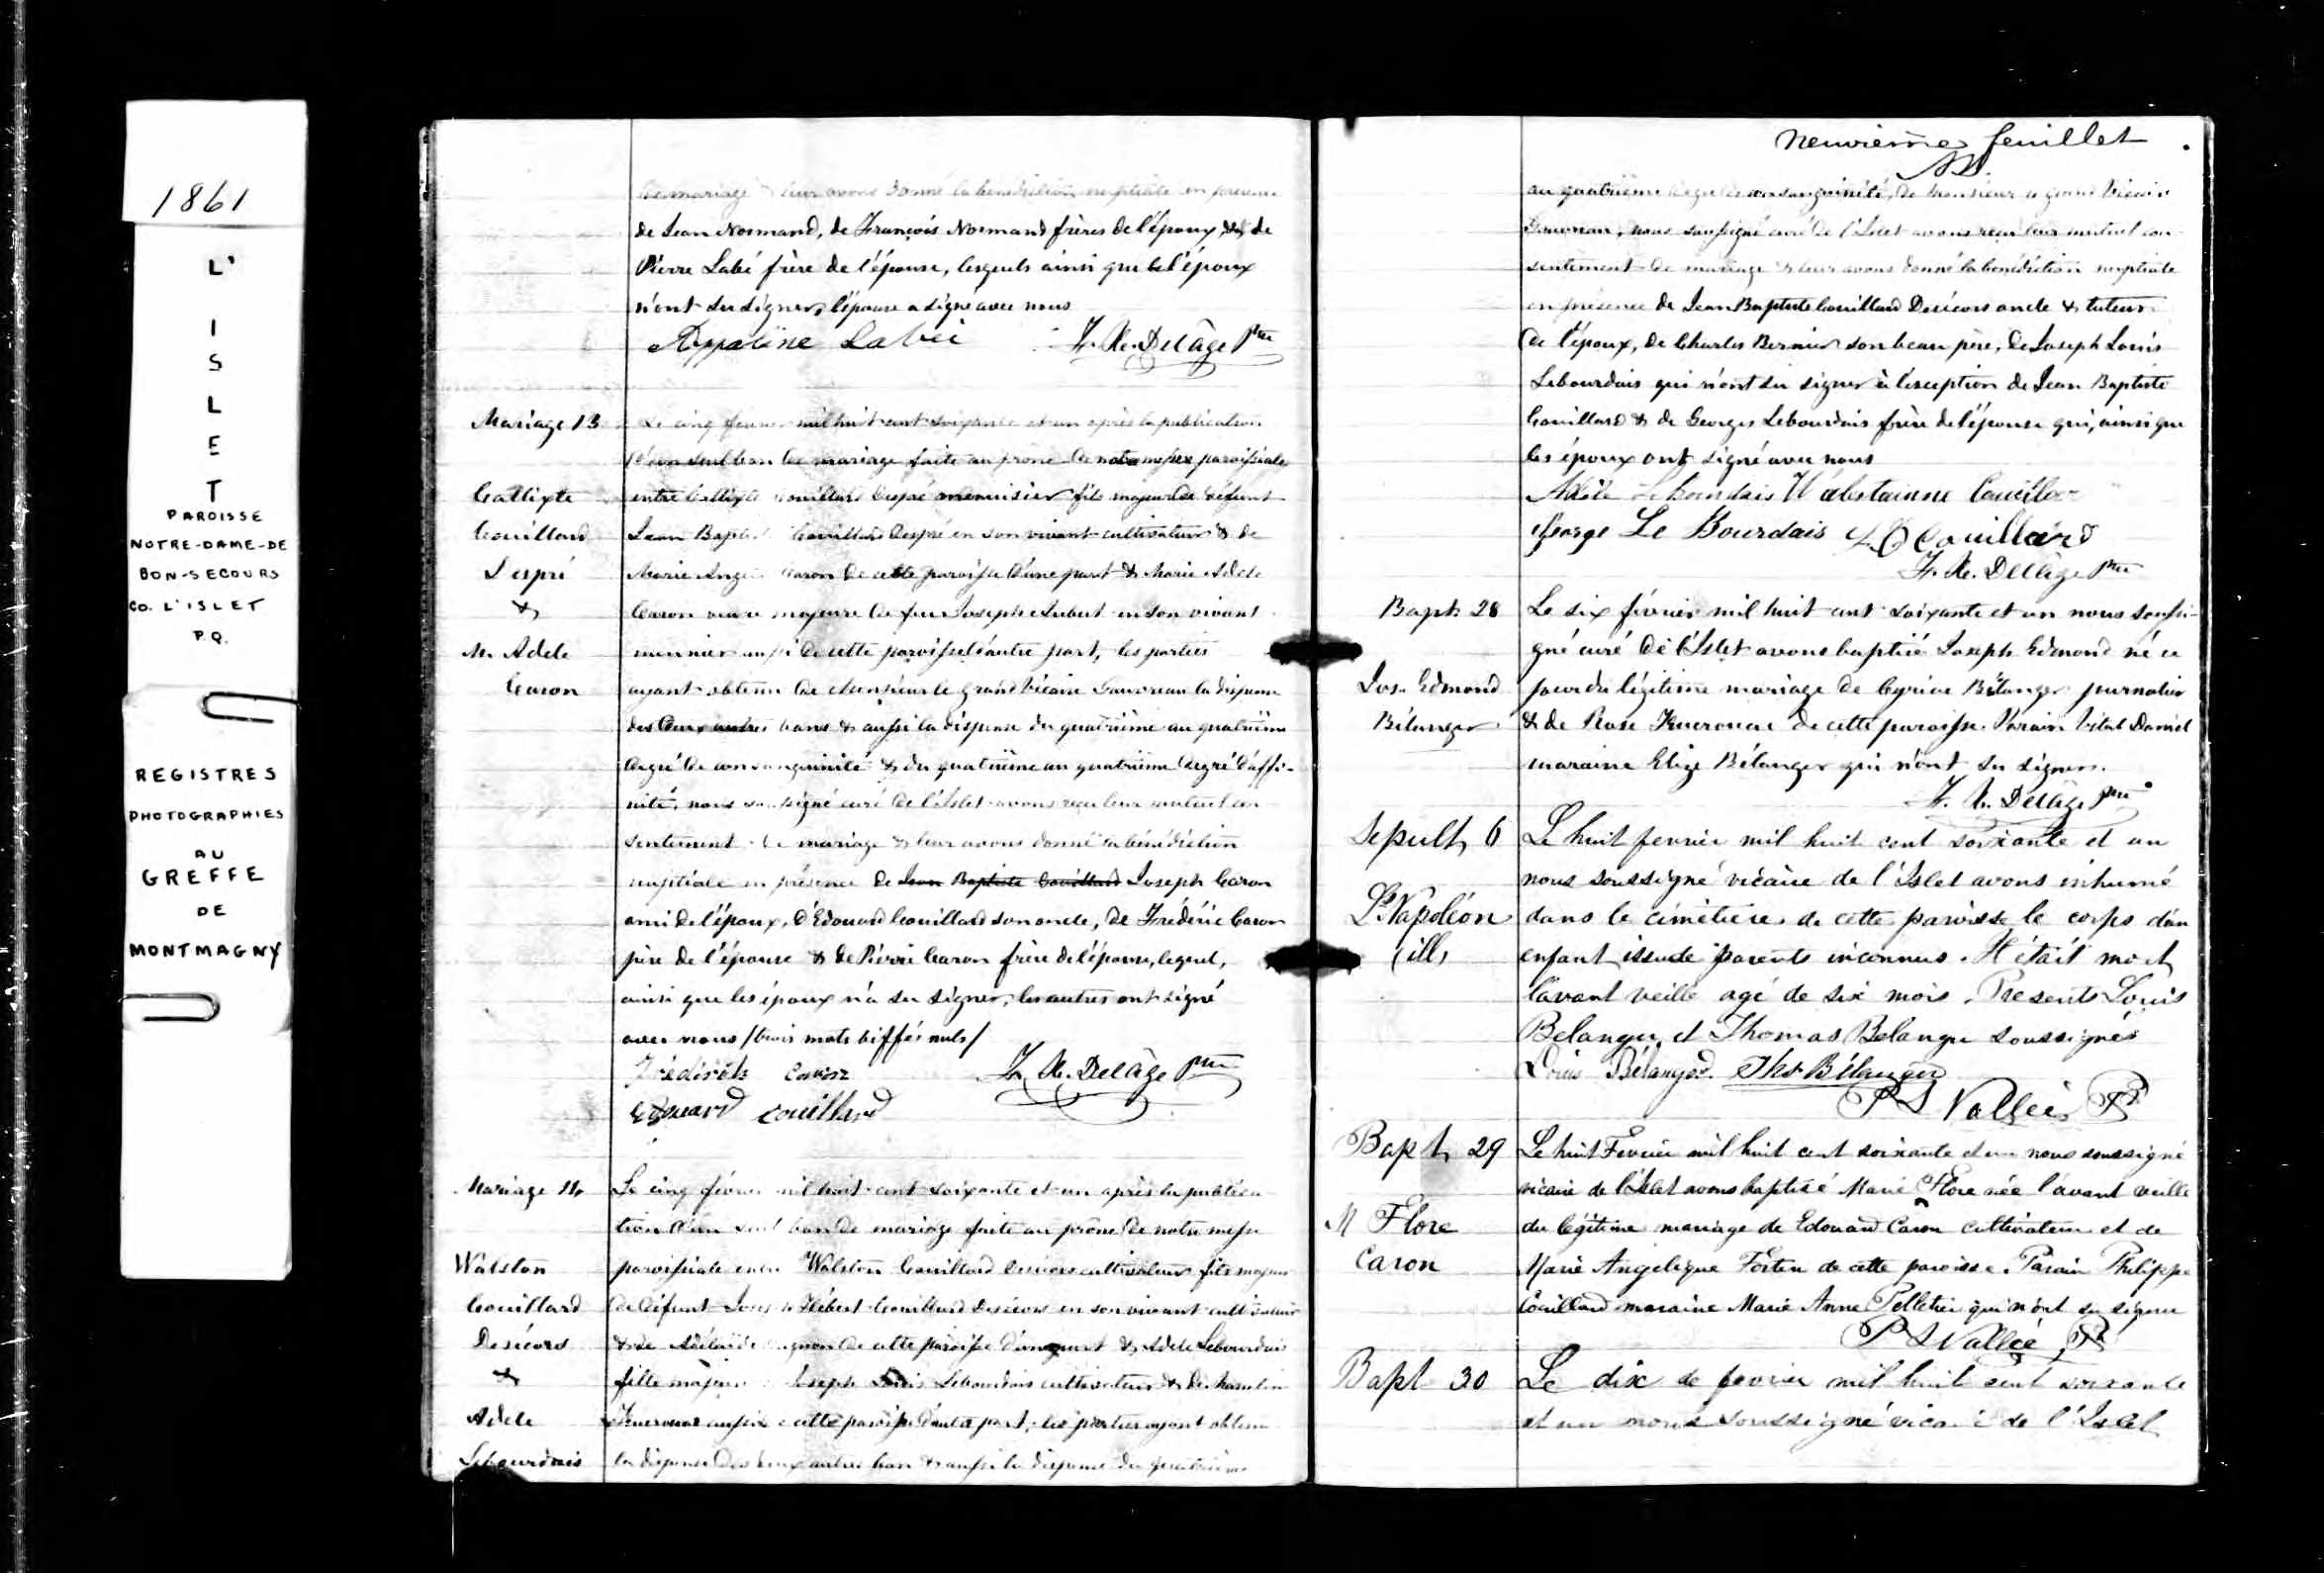 1861
L'
I
S
L
E
T
PAROISSE
NOTRE-DAME-DE
BON-SECOURS
CO. L'ISLET
P.Q.
REGISTRES
PHOTOGRAPHIES
AU
GREFFE
DE
MONTMAGNY
de mariage & leur avons donné la bénédiction nuptiale en présence
de Jean Normand, de François Normand frères de l'époux, & de
Pierre Labé frère de l'épouse, lesquels ainsi que l'époux
n'ont su signer, l'épouse a signé avec nous
Appoline Labée F. X. Delâge Ptre
Mariage 13
Callixte
Couillard
Despré
&
M. Adele
Caron
Le cinq fevrier mil huit cent soixante et un après la publication
d'un seul ban de mariage faite au prône de notre messe paroissiale
entre Callixte Couillard Despré menuisier fils majeur de défunt
Jean Baptiste Couillard Despré en son vivant cultivateur & de
Marie Ange Caron de cette paroisse d'une part & Marie Adele
Caron veuve majeure de feu Joseph Aubert en son vivant
meunier aussi de cette paroisse d'autre part, les parties
ayant obtenu de Monsieur le grand Vicaire Gauvreau la dispense
des deux autres bans & aussi la dispense du quatrième au quatrième
degré de consanguinité & du quatrième au quatrième degré d'affi-
nité, nous soussigné curé de l'Islet avons reçu leur mutuel con-
sentement de mariage & leur avons donné la bénédiction
nuptiale en présence de Jean Baptiste Couillard Joseph Caron
ami de l'époux, d'Edouard Couillard son oncle, de Frédéric Caron
père de l'épouse & de Pierre Caron frère de l'épouse, lequel,
ainsi que les époux n'a su signer, les autres ont signé
avec nous /trois mots biffés nuls/
Frédérik Caron F. X. Delâge Ptre
Edouard Couillard
Mariage 14
Walston
Couillard
Desécors
&
Adele
Lebourdais
Le cinq février mil huit cent soixante et un après la publica
tion d'un seul ban de mariage faite au prône de notre messe
paroissiale entre Walston Couillard Desécors cultivateur fils majeur
de défunt Joseph Hébert Couillard Desécors en son vivant cultivateur
& de Adélaïde de cette paroisse d'une part & Adele Lebourdais
fille majeure Joseph Louis Lebourdais cultivateur & de
Kuerouac aussi de cette paroisse d'autre part, les parties ayant obtenu
la dispense des deux autres bans & aussi la dispense du quatrième
neuvième feuillet
au quatrième degré de consanguinité, de Monsieur le grand Vicaire
Gauvreau, nous soussigné curé de l'Islet avons reçu leur mutuel con-
sentement de mariage & leur avons donné la bénédiction nuptiale
en présence de Jean Baptiste Couillard Desécors oncle & tuteur
de l'époux, de Charles Bernier son beau père, de Joseph Louis
Lebourdais qui n'ont su signer à l'exception de Jean Baptiste
Couillard & de Georges Lebourdais frère de l'épouse qui, ainsi que
les époux ont signé avec nous
Adèle Lebourdais Walstainne Couillar
George Le Bourdais J B Couillard
F. X. Delâge Ptre
Bapt. 28
Jos. Edmond
Bélanger
Le six février mil huit cent soixante et un nous soussi-
gné curé de l'Islet avons baptisé Joseph Edmond né ce
jour du légitime mariage de Cyriac Bélanger journalier
& de Rose Kuerouac de cette paroisse. Parain Vital Daniel
maraine Elize Bélanger qui n'ont su signer.
F. X. Delâge Ptre
Sepult. 6
Ls Napoléon
(ill)
Le huit fevrier mil huit cent soixante et un
nous soussigné vicaire de l'Islet avons inhumé
dans le cimetière de cette paroisse le corps d'un
enfant issu de parents inconnus. Il était mort
l'avant veille agé de six mois. Présents Louis
Belanger et Thomas Belanger soussignés
Louis Bélanger Ths Bélanger
P S Vallée Ptr
Bapt. 29
M Flore
Caron
Le huit Fevrier mil huit cent soixante et un nous soussigné
vicaire de l'Islet avons baptisé Marie Flore née l'avant veille
du légitime mariage de Edouard Caron cultivateur et de
Marie Angelique Fortin de cette paroisse. Parain Philippe
Couillard maraine Marie Anne Pelletier qui n'ont su signer
P S Vallée Ptr
Bapt 30
Le dix de fevrier mil huit cent soixante
et un nous soussigné vicaire de l'Islet